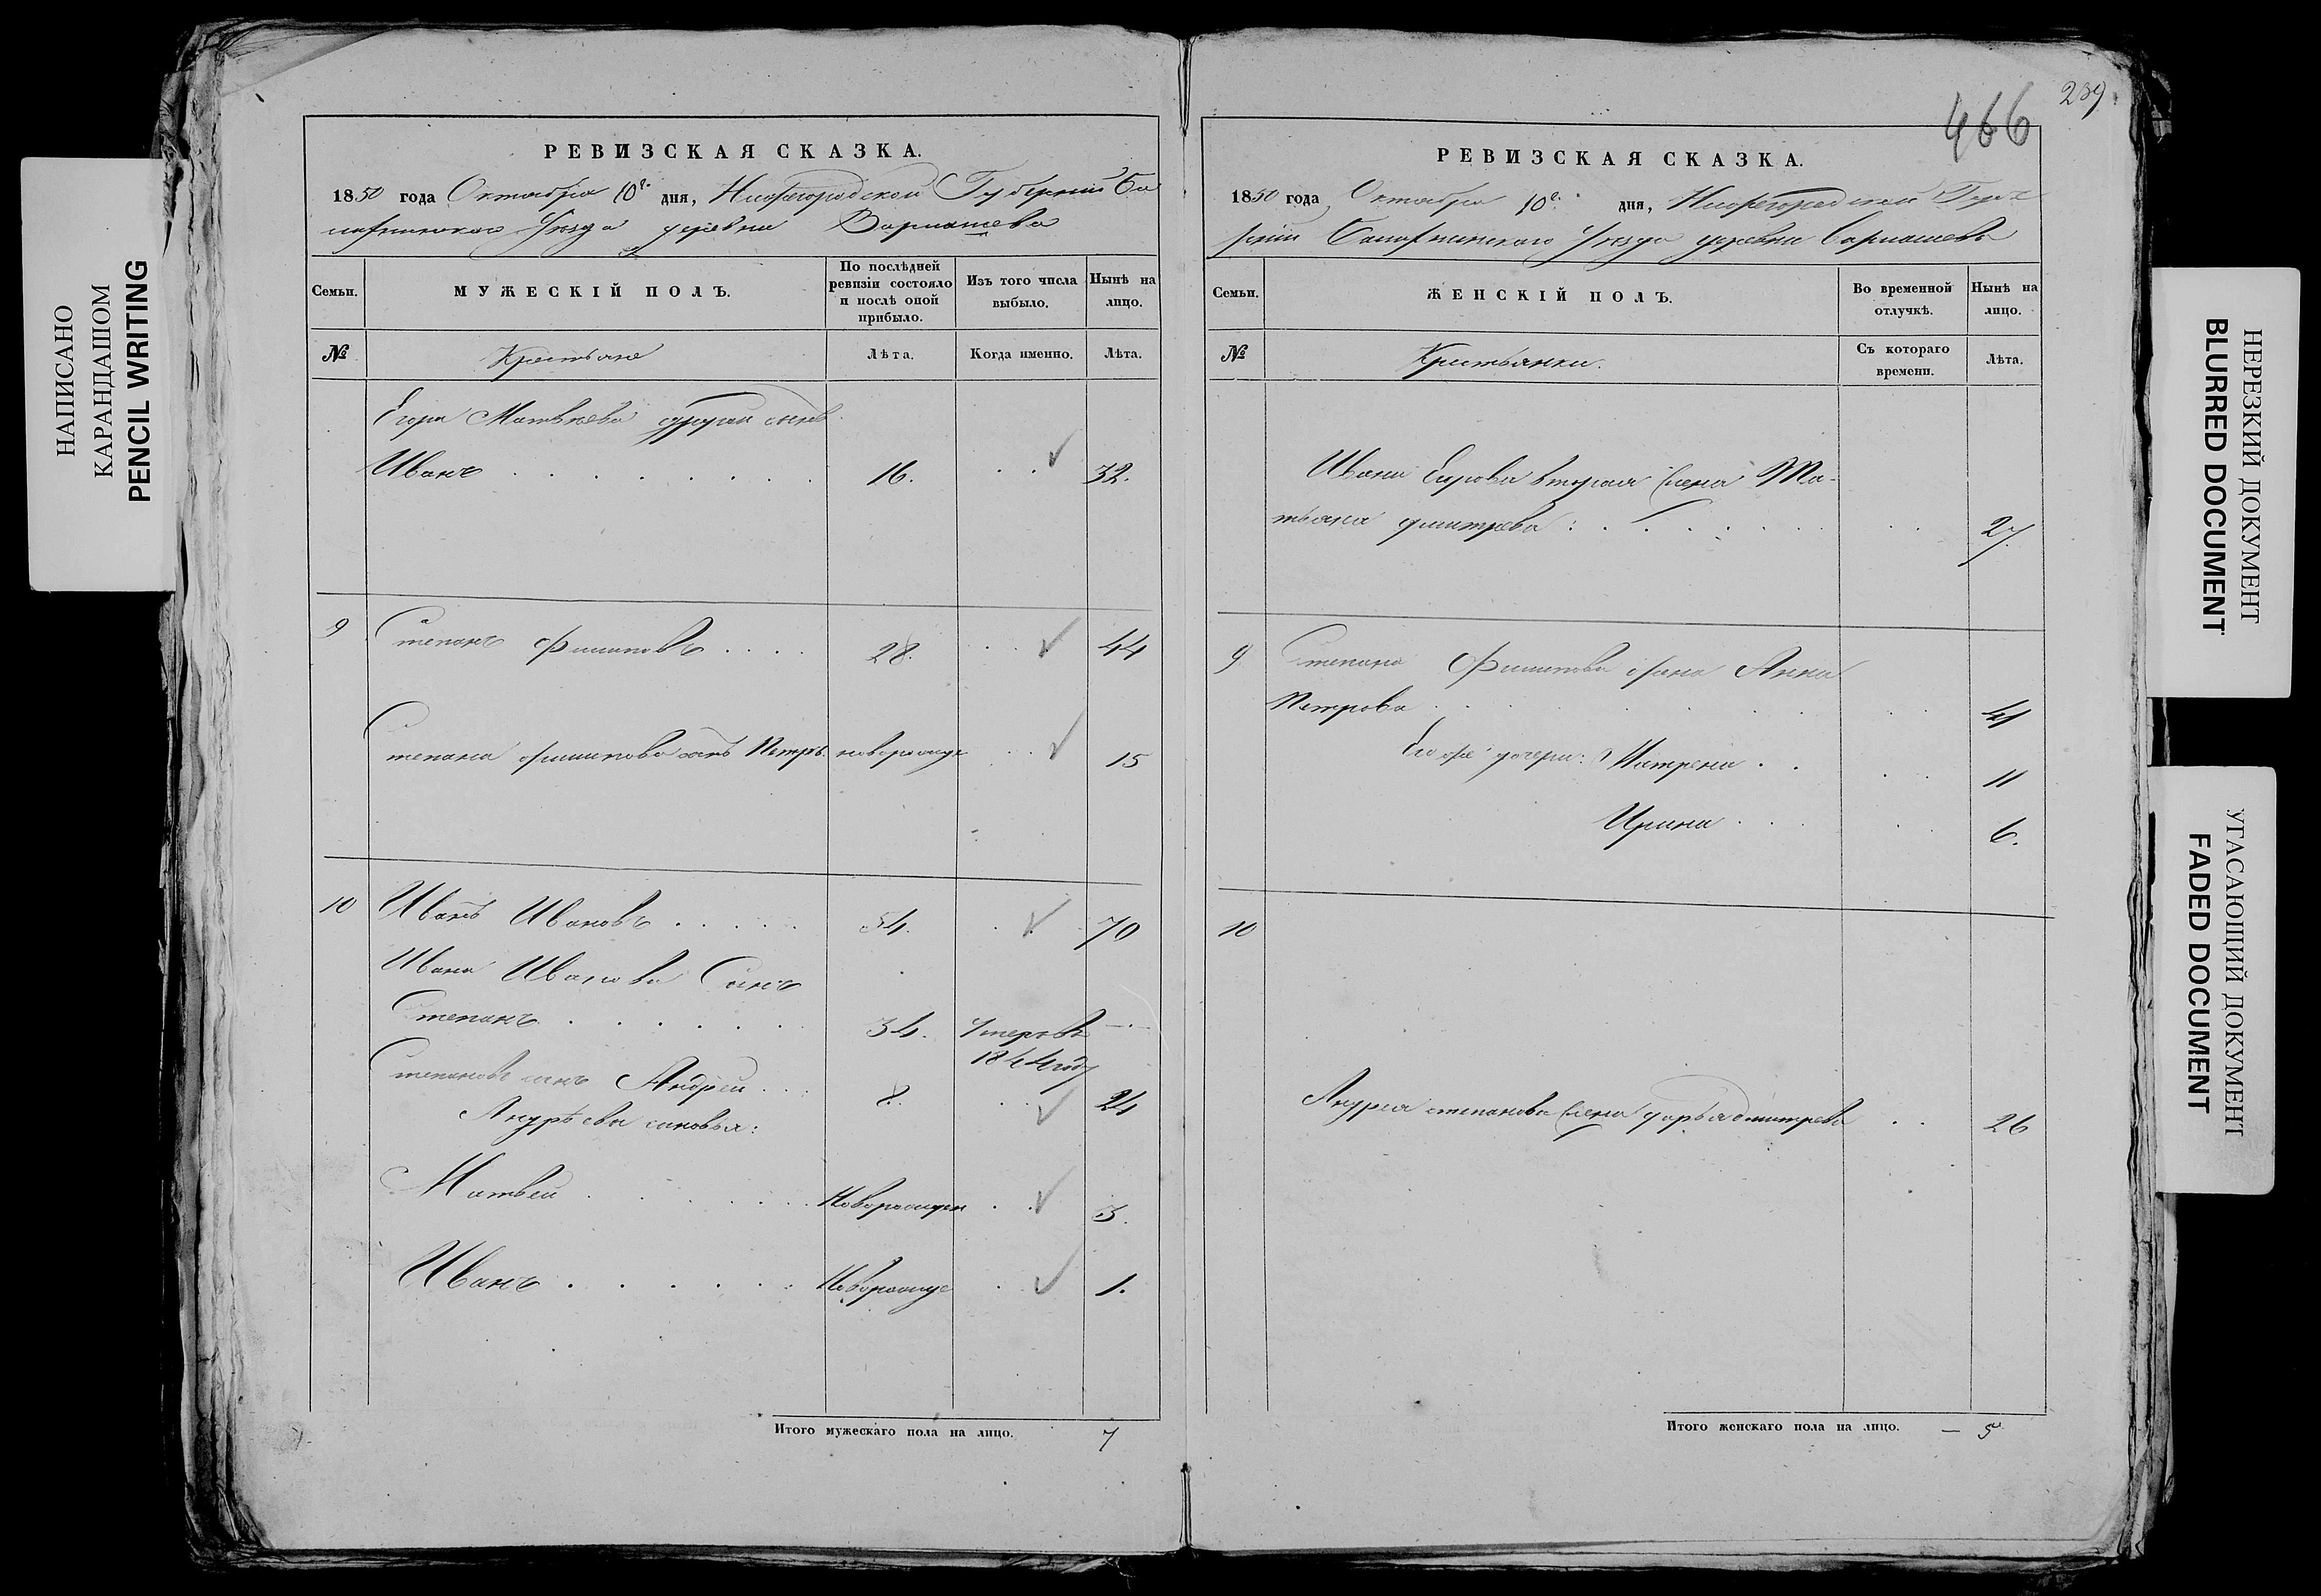 НАПИСАНО
КАРАНДАШОМ
PENCIL WRITING
РЕВИЗСКАЯ СКАЗКА.
1850 года Октября 10го дня, Нижегородской Губернии Ба
лахнинскаго Уезда деревни Варнашева
Семьи.
МУЖЕСКІЙ ПОЛЪ.
По послѣдней
ревизіи состояло
и послѣ оной
прибыло.
Изъ того числа
выбыло.
Нынѣ на
лицо.
№ Крестьяне Лѣта. Когда именно. Лѣта.
Егора Матвѣева другой сынъ
Иванъ 16. 32.
9 Степанъ Филиповъ 28. 44
Степана филипова сынъ Петръ новорожде 15
10 Иванъ Ивановъ 54. 70
Ивана Иванова Сынъ
Степанъ 34. Умеръ въ
1844 году
Степановъ сынъ Андрей 8. 24
Андрѣевы сыновья:
Матвей Новорожден 3.
Иванъ Новорожде 1.
Итого мужескаго пола на лицо. 7
239
466
РЕВИЗСКАЯ СКАЗКА.
1850 года Октября 10го дня, Нижегородской Губе
рніи Балахнинскаго Уезда деревни Варнашева
Семьи.
ЖЕНСКІЙ ПОЛЪ.
Во временной
отлучкѣ.
Нынѣ на
лицо.
№ Крестьянки. Съ котораго
времени. Лѣта.
Ивана Егорова вторая жена Та-
тьяна дмитрева 27.
9 Степана Филипова жена Анна
Петрова 41
Его же дочери: Матрена 11
Ирина 6.
10
Андрея степанова жена дарья дмитрева 26
Итого женскаго пола на лицо. — 5
НЕРЕЗКИЙ ДОКУМЕНТ
BLURRED DOCUMENT
УГАСАЮЩИЙ ДОКУМЕНТ
FADED DOCUMENT